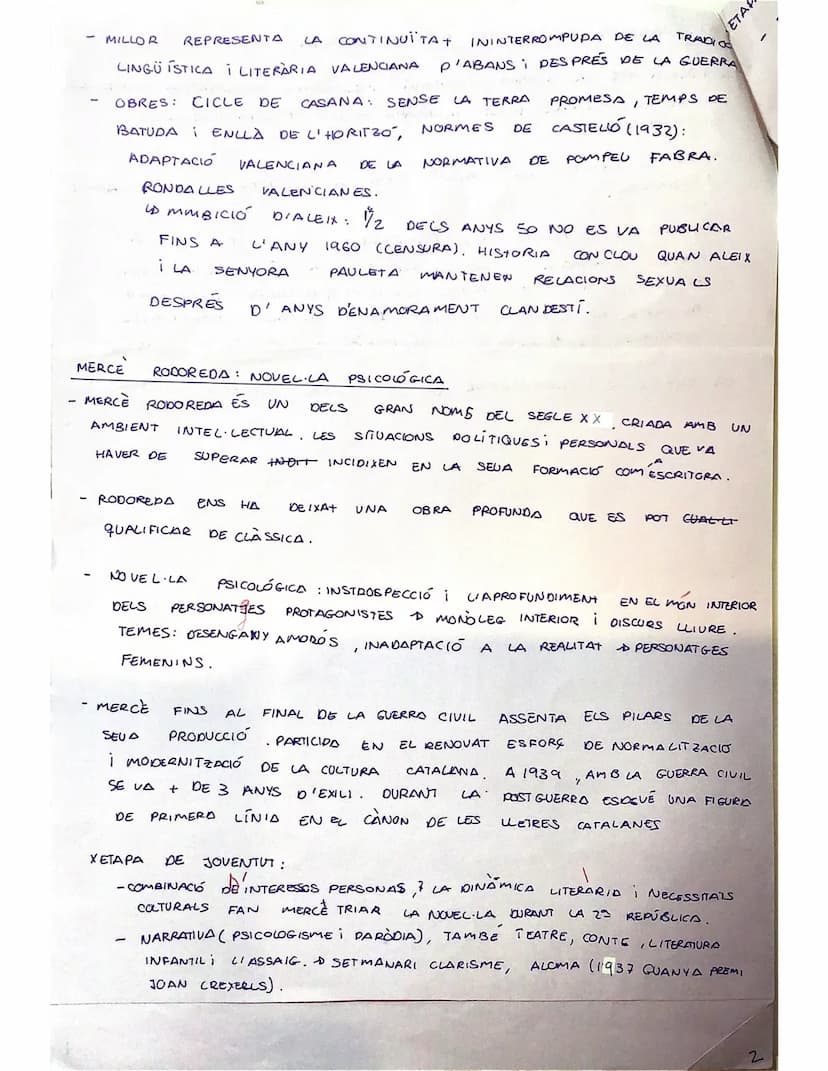 ETAPA
- MILLOR REPRESENTA LA CONTINUÏTAT ININTERROMPUDA DE LA TRADICIÓ
LINGÜÍSTICA i LITERÀRIA VALENCIANA D'ABANS i DESPRÉS DE LA GUERRA
- OBRES: CICLE DE CASANA: SENSE LA TERRA PROMESA, TEMPS DE
BATUDA i ENLLÀ DE L'HORITZÓ, NORMES DE CASTELLÓ (1932):
ADAPTACIÓ VALENCIANA DE LA NORMATIVA DE POMPEU FABRA.
RONDALLES VALENCIANES.
↳ MMBICIÓ D'ALEIX: 1/2 DELS ANYS 50 NO ES VA PUBLICAR
FINS A L'ANY 1960 (CENSURA). HISTORIA CONCLOU QUAN ALEIX
i LA SENYORA PAULETA MANTENEN RELACIONS SEXUALS
DESPRÉS D'ANYS D'ENAMORAMENT CLANDESTÍ.
MERCÈ RODOREDA: NOVEL·LA PSICOLÓGICA
- MERCÈ RODOREDA ÉS UN DELS GRAN NOMS DEL SEGLE XX. CRIADA AMB UN
AMBIENT INTEL·LECTUAL. LES SITUACIONS POLÍTIQUES i PERSONALS QUE VA
HAVER DE SUPERAR INCIDIXEN EN LA SEUA FORMACIÓ COM A ESCRITORA.
- RODOREDA ENS HA DEIXAT UNA OBRA PROFUNDA QUE ES POT CUALLI
QUALIFICAR DE CLÀSSICA.
- NOVEL·LA PSICOLÓGICA: INSTROSPECCIÓ i L'APROFUNDIMENT EN EL MÓN INTERIOR
DELS PERSONATGES PROTAGONISTES → MONÒLEG INTERIOR i DISCURS LLIURE.
TEMES: DESENGANY AMORÓS, INADAPTACIÓ A LA REALITAT → PERSONATGES
FEMENINS.
- MERCÈ FINS AL FINAL DE LA GUERRA CIVIL ASSENTA ELS PILARS DE LA
SEUA PRODUCCIÓ. PARTICIPA EN EL RENOVAT ESFORÇ DE NORMALITZACIÓ
i MODERNITZACIÓ DE LA CULTURA CATALANA. A 1939, AMB LA GUERRA CIVIL
SE VA + DE 3 ANYS D'EXILI. DURANT LA POSTGUERRA ESDEVÉ UNA FIGURA
DE PRIMERA LÍNIA EN EL CÀNON DE LES LLETRES CATALANES
XETAPA DE JOVENTUT:
- COMBINACIÓ D'INTERESSOS PERSONAS, LA DINÀMICA LITERÀRIA i NECESSITATS
CULTURALS FAN MERCÈ TRIAR LA NOVEL·LA DURANT LA 2a REPÚBLICA.
- NARRATIVA (PSICOLOGISME i PARÒDIA), TAMBÉ TEATRE, CONTE, LITERATURA
INFANTIL i L'ASSAIG. → SETMANARI CLARISME, ALOMA (1937 GUANYA PREMI
JOAN CREXELLS).
2